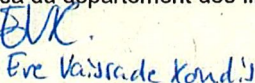 EVK.
Eve Vaissade Kondis